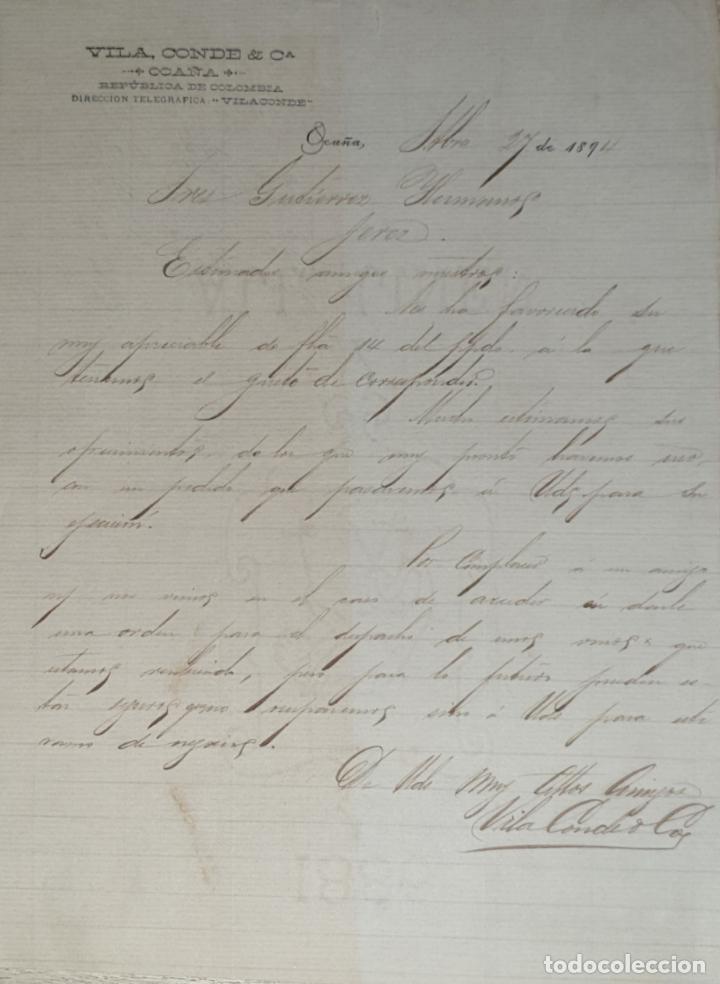 VILA, CONDE & Cª
OCAÑA
REPÚBLICA DE COLOMBIA
DIRECCION TELEGRAFICA: "VILACONDE"
Ocaña, 27 de 1894
Sres Gutierrez Hermanos
Jerez.
Estimados amigos nuestros:
Nos ha favorecido su
muy apreciable de fha 14 del ppdo. á la que
tenemos el gusto de corresponder.
Mucho estimamos sus
ofrecimientos, de los que muy pronto haremos uso,
con un pedido que pasaremos á Uds. para su
Por complacer á un amigo
nos vimos en el caso de acceder en darle
una orden para el despacho de unos vinos que
estamos recibiendo, pero para lo futuro pueden es-
tar seguros que no ocuparemos sino á Uds para este
ramo de negocios.
De Uds Muy Attos Amigos
Vila Conde & Co
todocoleccion